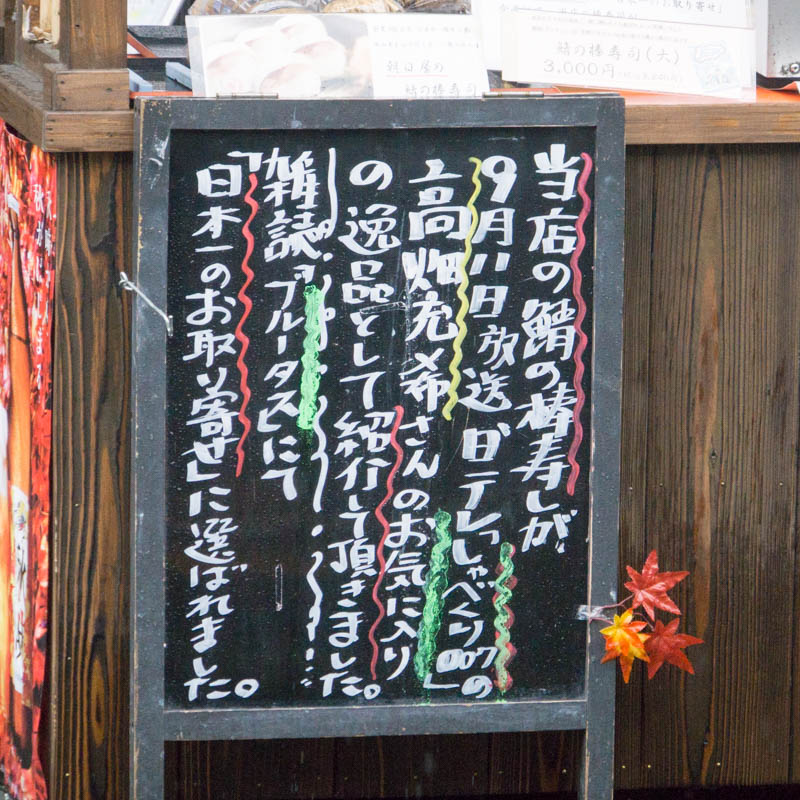 当店の鯖の棒寿しが
9月11日放送 日テレ「しゃべくり007」の
高畑充希さんのお気に入り
の逸品として紹介して頂きました。
雑誌「ブルータス」にて
「日本一のお取り寄せ」に選ばれました。
朝日屋の
鯖の棒寿司
お取り寄せ」
鯖の棒寿司(大)
3,000円